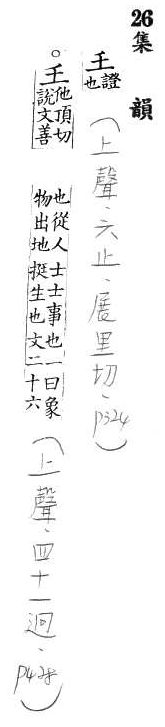 26 集韻
𡈼證也(上聲.六止.展里切.p324)
。𡈼他頂切說文善也從人士士事也一曰象物出地挺生也文二十六(上聲.四十一迴.p428)